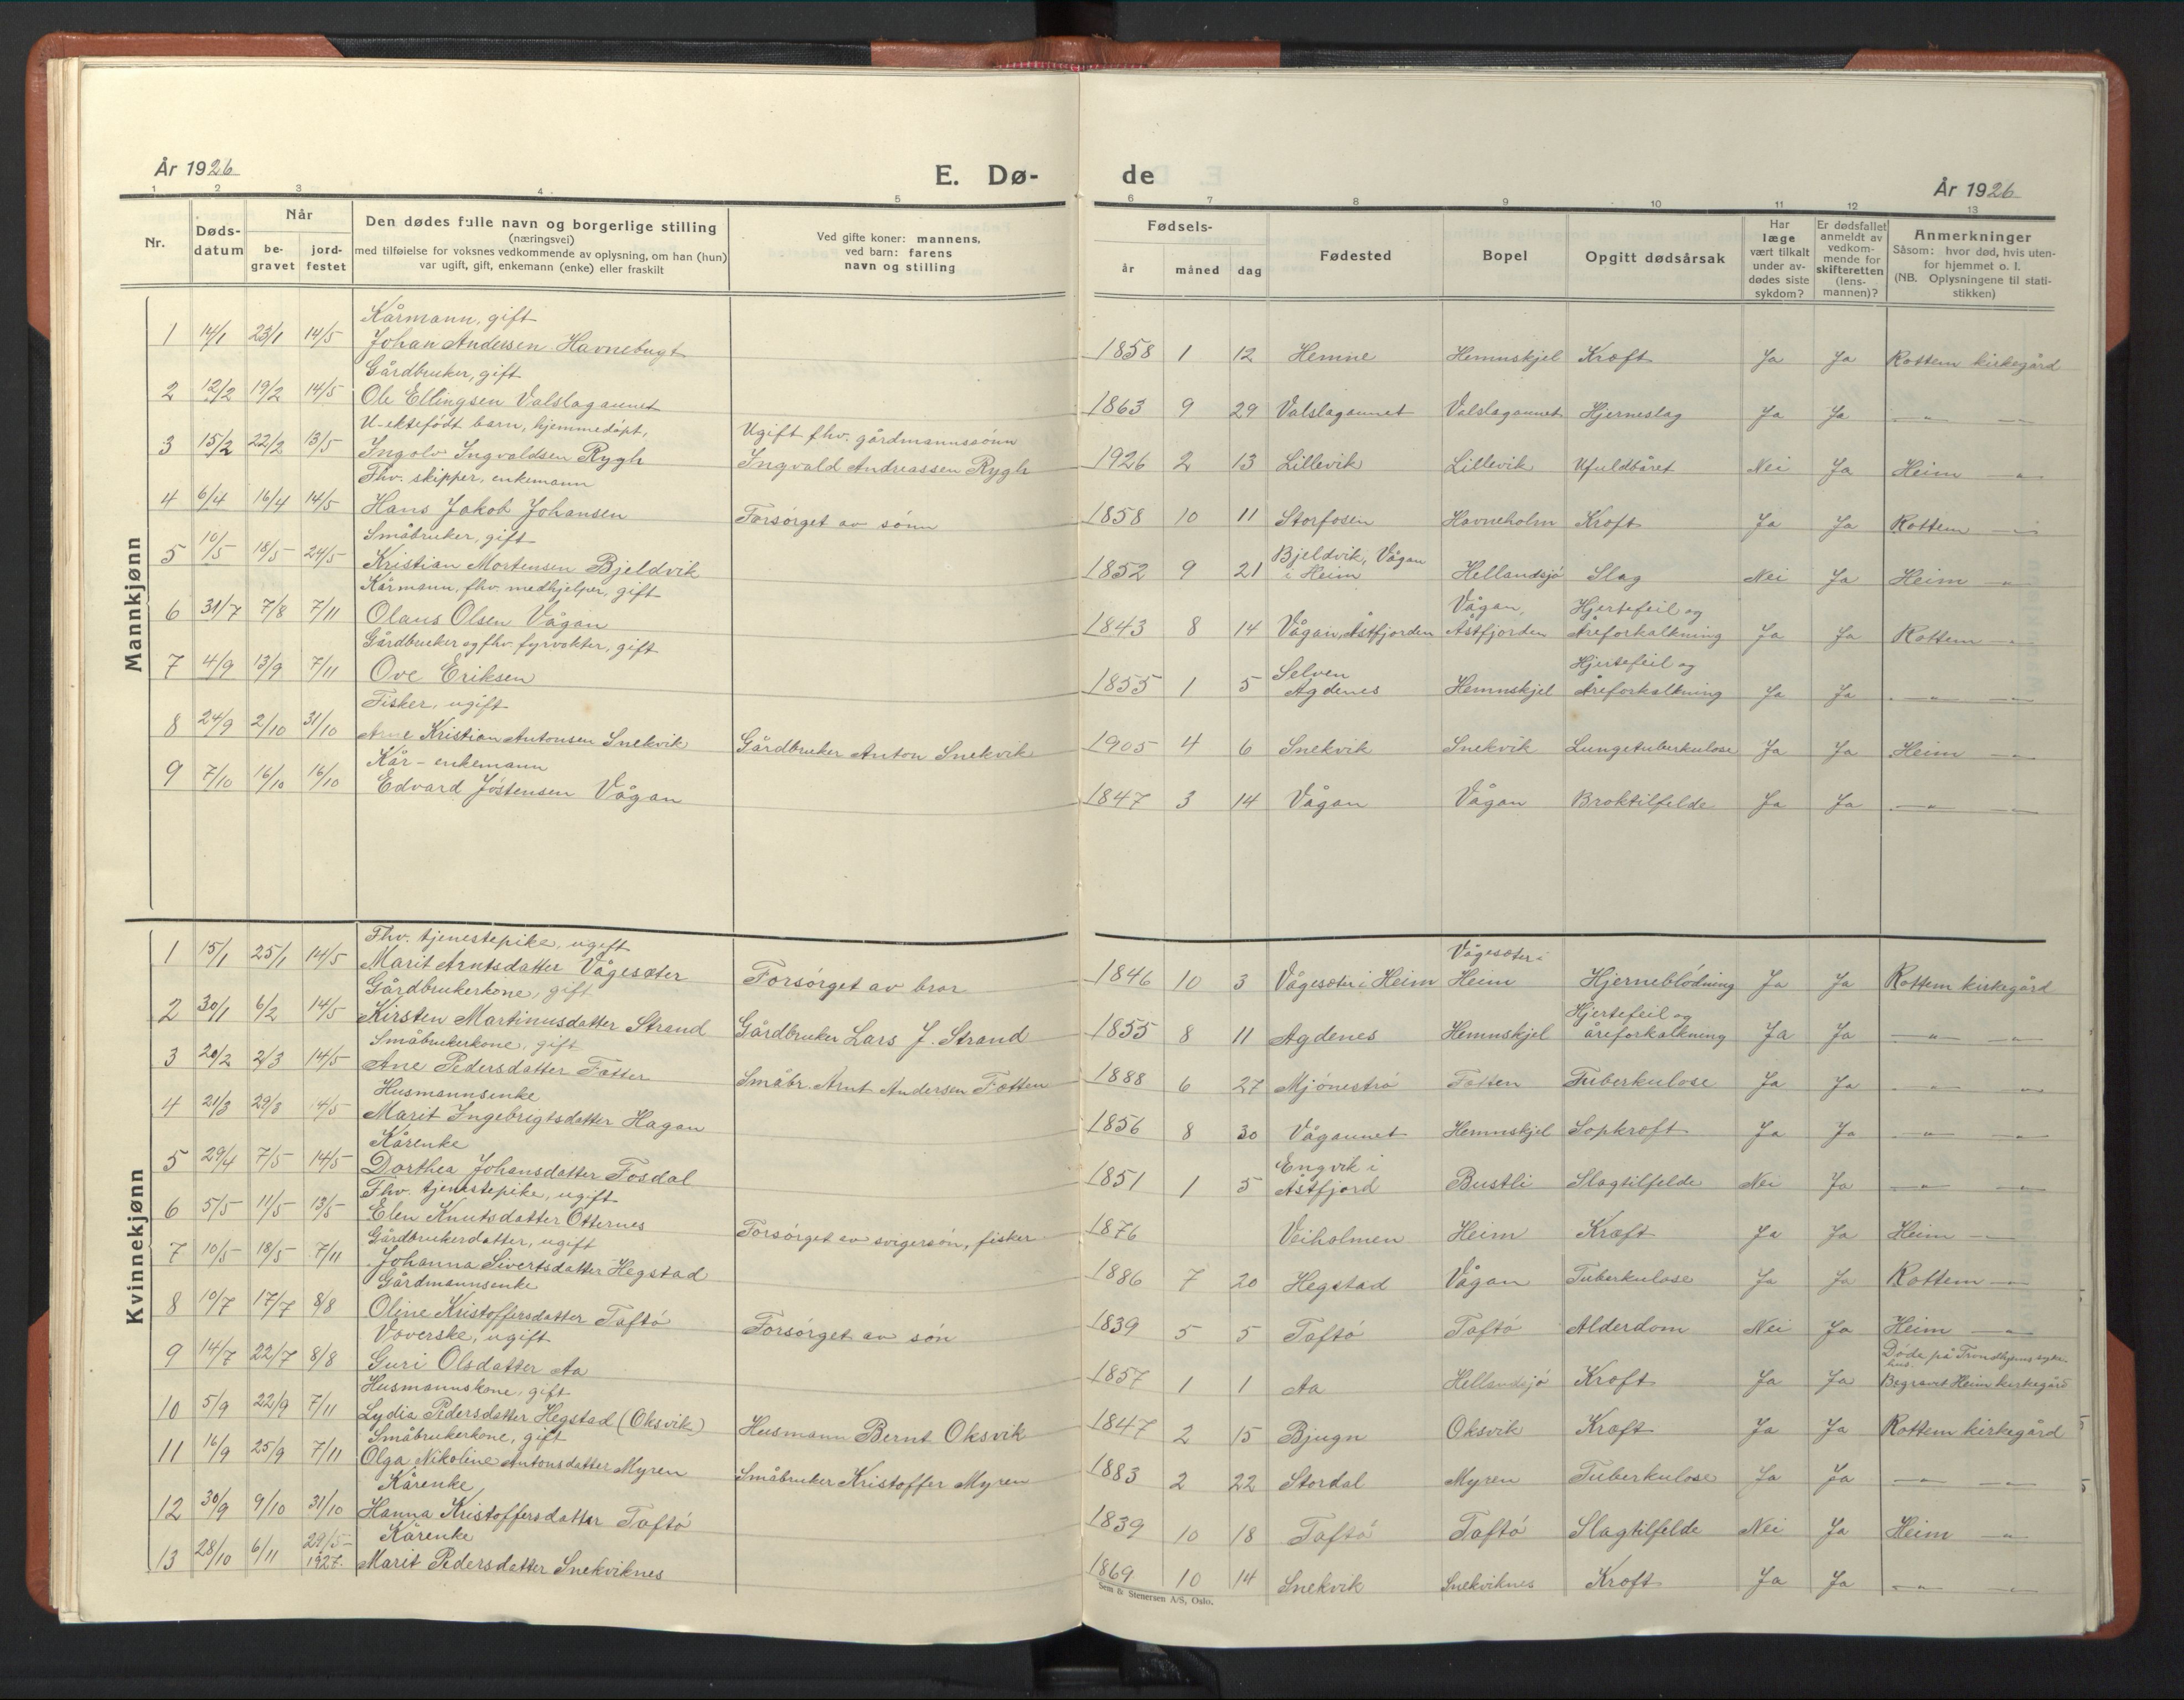 År 1926
E. Dø-
de
År 1926
1 2 3 4 5 6 7 8 9 10 11 12 13
Nr.
Døds-
datum
Når
be-
gravet
jord-
festet
Den dødes fulle navn og borgerlige stilling
(næringsvei)
med tilføielse for voksnes vedkommende av oplysning, om han (hun)
var ugift, gift, enkemann (enke) eller fraskilt
Ved gifte koner: mannens,
ved barn: farens
navn og stilling
Fødsels-
år måned dag
Fødested
Bopel
Opgitt dødsårsak
Har
læge
vært tilkalt
under av-
dødes siste
sykdom?
Er dødsfallet
anmeldt av
vedkom-
mende for
skifteretten
(lens-
mannen)?
Anmerkninger
Såsom: hvor død, hvis uten-
for hjemmet o. l.
(NB. Oplysningene til stati-
stikken)
Mannkjønn
Kårmann, gift
1 14/1 23/1 14/5 Johan Andersen Havnebugt 1858 1 12 Hemne Hemnskjel Kræft Ja Ja Rottem kirkegård
Gårdbruker, gift
2 12/2 19/2 14/5 Ole Ellingsen Valslagaunet 1863 9 29 Valslagaunet Valslagaunet Hjerneslag Ja Ja —„— —
U-ektefödt barn, hjemmedöpt, Ugift fhv. gårdmannssönn
3 15/2 22/2 13/5 Ingolv Ingvaldsen Rygh Ingvald Andreassen Rygh 1926 2 13 Lillevik Lillevik Ufuldbåret Nei Ja Heim —„—
Fhv. skipper, enkemann
4 6/4 16/4 14/5 Hans Jakob Johansen Forsörget av sönn 1858 10 11 Storfosen Havneholm Kræft Ja Ja Rottem —„—
Småbruker, gift Bjeldvik, Vågan
5 10/5 18/5 24/5 Kristian Mortensen Bjeldvik 1852 9 21 i Heim Hellandsjö Slag Nei Ja Heim —„—
Kårmann, fhv. medhjelper, gift Vågan, Hjertefeil og
6 31/7 7/8 7/11 Olaus Olsen Vågan 1843 8 14 Vågan, Åstfjorden Åstfjorden Åreforkalkning Ja Ja Rottem —„—
Gårdbruker og fhv. fyrvokter, gift Selven Hjertefeil og
7 4/9 13/9 7/11 Ove Eriksen 1855 1 5 Agdenes Hemnskjel Åreforkalkning Ja Ja —„— —
Fisker, ugift
8 24/9 2/10 31/10 Arne Kristian Antonsen Snekvik Gårdbruker Anton Snekvik 1905 4 6 Snekvik Snekvik Lungetuberkulose Ja Ja Heim —„—
Kår-enkemann
9 7/10 16/10 16/10 Edvard Jöstensen Vågan 1847 3 14 Vågan Vågan Broktilfelde Ja Ja —„— —„—
Kvinnekjønn
Fhv. tjenestepike, ugift Vågesæter i
1 15/1 25/1 14/5 Marit Arntsdatter Vågesæter Forsörget av bror 1846 10 3 Vågesæter i Heim Heim Hjerneblödning Ja Ja Rottem kirkegård
Gårdbrukerkone, gift Hjertefeil og
2 30/1 6/2 14/5 Kirsten Martinusdatter Strand Gårdbruker Lars J. Strand 1855 8 11 Agdenes Hemnskjel åreforkalkning Ja Ja —„— „
Småbrukerkone, gift
3 20/2 2/3 14/5 Ane Pedersdatter Småbr. Arnt Andersen 1888 6 27 Mjöneströ Tuberkulose Ja Ja —„— —„—
Husmannsenke
4 21/3 29/3 14/5 Marit Ingebrigtsdatter Hagan 1856 8 30 Vågaunet Hemnskjel Sopkræft Ja Ja —„— —„—
Kårenke Engvik i
5 29/4 7/5 14/5 Dorthea Johansdatter Fosdal 1851 1 5 Åstfjord Bustli Slagtilfelde Nei Ja —„— —„—
Fhv. tjenestepike, ugift
6 5/5 11/5 13/5 Elen Knutsdatter Otternes Forsörget av svigersön, fisker 1876 Veiholmen Heim Kræft Ja Ja Heim —„—
Gårdbrukerdatter, ugift
7 10/5 18/5 7/11 Johanna Sivertsdatter Hegstad 1886 7 20 Hegstad Vågan Tuberkulose Ja Ja Rottem —„—
Gårdmannsenke
8 10/7 17/7 8/8 Oline Kristoffersdatter Taftö Forsörget av sön 1839 5 5 Taftö Taftö Alderdom Nei Ja Heim —„—
Væverske, ugift Döde på Trondhjems syke-
hus.
9 14/7 22/7 8/8 Guri Olsdatter Aa 1857 1 1 Aa Hellandsjö Kræft Ja Ja Begravet Heim kirkegård
Husmannskone, gift
10 5/9 22/9 7/11 Lydia Pedersdatter Hegstad (Oksvik) Husmann Bernt Oksvik 1847 2 15 Bjugn Oksvik Kræft Ja Ja Rottem kirkegård
Småbrukerkone, gift
11 16/9 25/9 7/11 Olga Nikoline Antonsdatter Myren Småbruker Kristoffer Myren 1883 2 22 Stordal Myren Tuberkulose Ja Ja —„— —„—
Kårenke
12 30/9 9/10 31/10 Hanna Kristoffersdatter Taftö 1839 10 18 Taftö Taftö Slagtilfelde Nei Ja Heim —„—
Kårenke
13 28/10 6/11 29/5-1927. Marit Pedersdatter Snekviknes 1869 10 14 Snekvik Snekviknes Kræft Ja Ja —„— „
Sem & Stenersen A/S, Oslo.